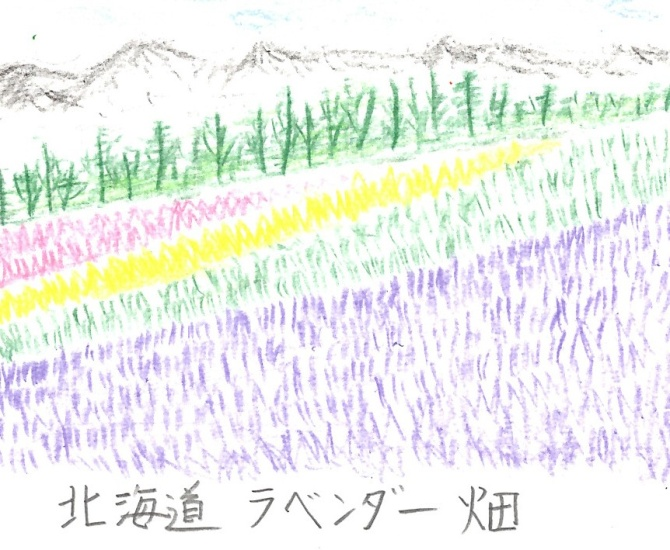 北海道 ラベンダー 畑